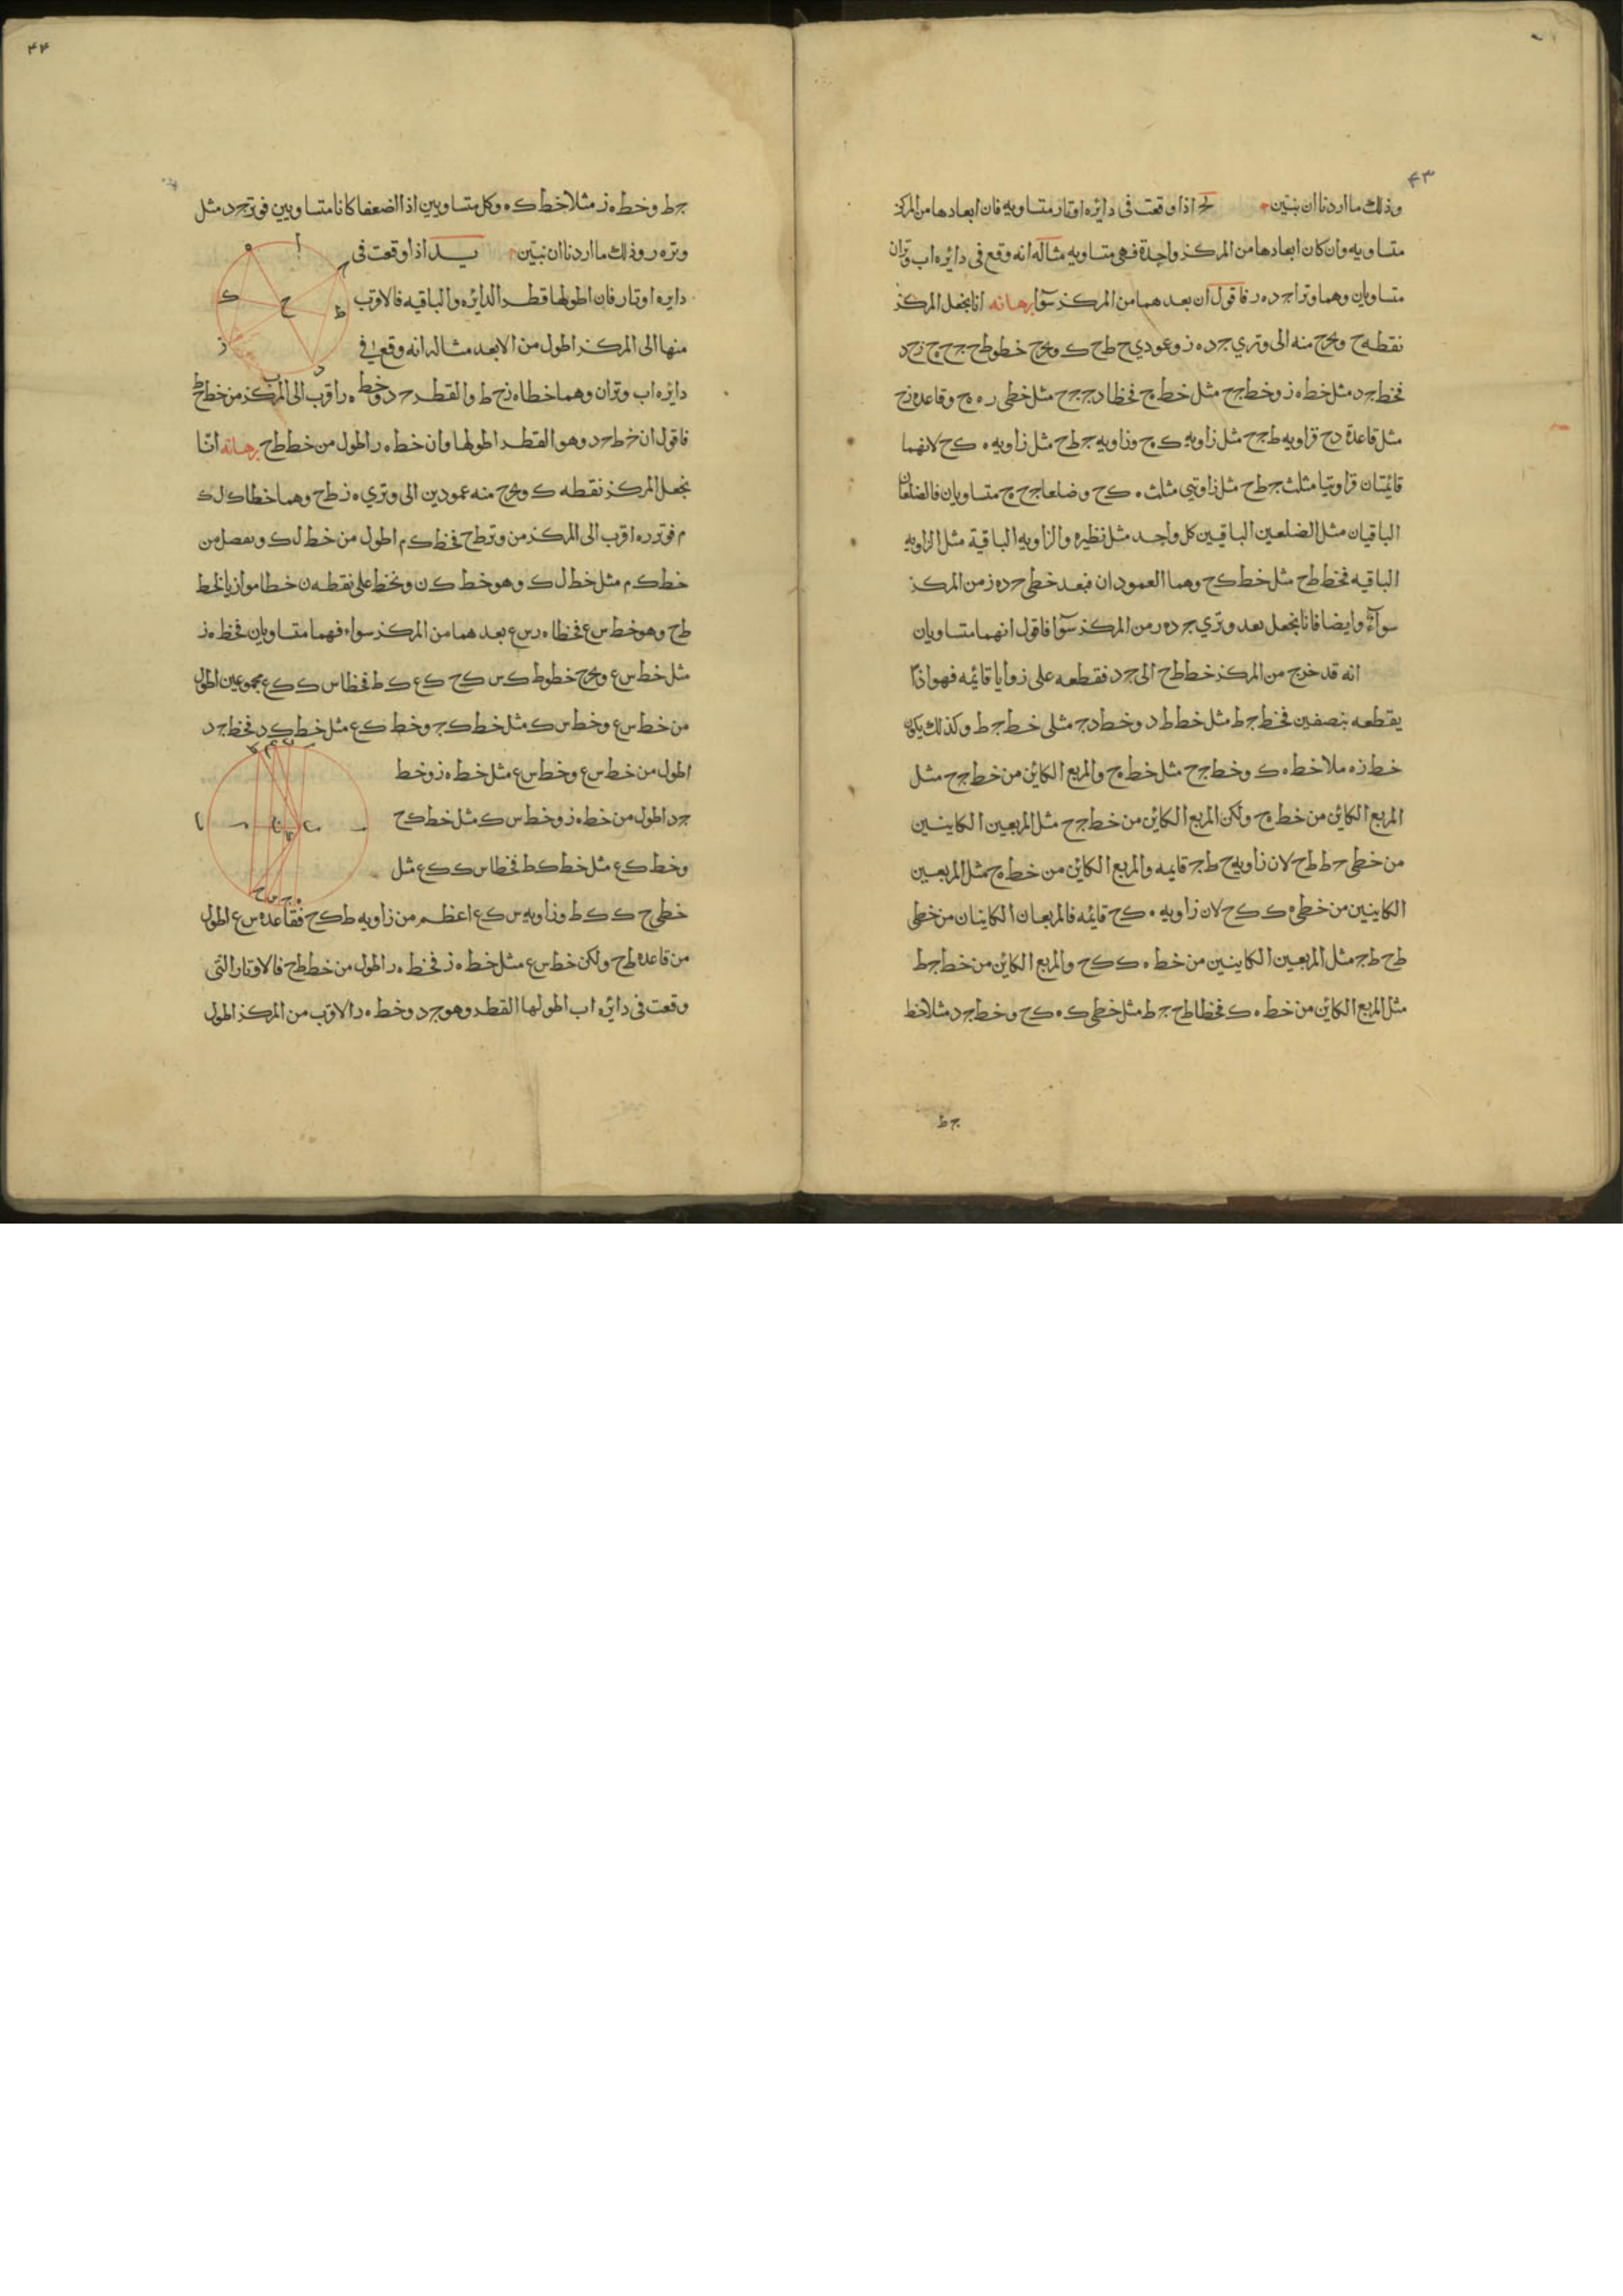 ٤٣
وذلك ما اردنا ان نبين يج اذا وقعت فى دايره اوتار متساويه فان ابعادها من المركز
متساويه وان كان ابعادها من المركز واحدة فهى متساويه مثاله انه وقع فى دايره اب وتران
متساويان وهما وترا جد ه ر فاقول ان بعدهما من المركز سوآ برهانه انا نجعل المركز
نقطه ح ونخرج منه الى وتري جد ه ز وعمودي ح ط ح ك ونخرج خطوط ح ج ح ه ح ز ح د
فخط جد مثل خط ه ز وخط ج ح مثل خط ه ح فخطا د ج ج ح مثل خطى ر ه ه ح وقاعده ز ح
مثل قاعدة د ح فزاويه ط ج ح مثل زاويه ك ه ح وزاويه ج ط ح مثل زاويه ه ك ح لانهما
قائمتان فزاويتا مثلث ج ط ح مثل زاويتى مثلث ه ك ح وضلعا ج ح ه ح متساويان فالضلعان
الباقيان مثل الضلعين الباقيين كل واحد مثل نظيره والزاويه الباقية مثل الزاويه
الباقيه فخط ط ح مثل خط ك ح وهما العمودان فبعد خطى ح د ه ز من المركز
سوآءٌ وايضا فانا نجعل بعد وتري جد ه ر من المركز سوآ فاقول انهما متساويان
انه قد خرج من المركز خط ط ح الى جد فقطعه على زوايا قائمه فهو اذًا
يقطعه بنصفين فخط ج ط مثل خط ط د وخط د ج مثلى خط ج ط وكذلك يكون
خط ز ه مثلا خط ه ك وخط ج ح مثل خط ه ح والمربع الكائن من خط ج ح مثل
المربع الكائن من خط ه ح ولكن المربع الكائن من خط ج ح مثل المربعين الكاينين
من خطى ح ط ط ج لان زاويه ح ط ج قايمه والمربع الكائن من خط ه ح مثل المربعين
الكاينين من خطى ه ك ك ح لان زاويه ه ك ح قائمه فالمربعان الكاينان من خطى
ط ح ط ج مثل المربعين الكاينين من خط ه ك ك ح والمربع الكائن من خط ج ط
مثل المربع الكائن من خط ه ك فخطا ط ح ج ط مثل خطى ك ه ك ح وخط جد مثلا خط
ج ط
٤٤
ج ط وخط ه ز مثلا خط ك ه وكل متساويين اذا اضعفا كانا متساويين فوتر جد مثل
وتر ه ر وذلك ما اردنا ان نبين يد اذا وقعت فى
دايره اوتار فان اطولها قطر الدائره والباقيه فالاقرب
منها الى المركز اطول من الابعد مثاله انه وقع فى
دايره اب وتران وهما خطا ه ز ح ط والقطر ج د وخط ه ر اقرب الى المركز من خط ح ط
فاقول ان خط ج د وهو القطر اطولها وان خط ه ر اطول من خط ط ح برهانه انّا
نجعل المركز نقطه ك ونخرج منه عمودين الى وتري ه ز ط ح وهما خطا ك ل ك
م فوتر ر ه اقرب الى المركز من وتر ط ح فخط ك م اطول من خط ل ك ونفصل من
خط ك م مثل خط ل ك وهو خط ك ن ونخط على نقطه ن خطا موازيا لخط
ط ح وهو خط س ع فخطا ه ر س ع بعدهما من المركز سواء فهما متساويان فخط ه ز
مثل خط س ع ونخرج خطوط ك س ك ح ك ع ك ط فخطا س ك ك ع مجموعين اطول
من خط س ع وخط س ك مثل خط ك ج وخط ك ع مثل خط ك د فخط ج د
اطول من خط س ع وخط س ع مثل خط ه ز وخط
ج د اطول من خط ه ز وخط س ك مثل خط ك ح
وخط ك ع مثل خط ك ط فخطا س ك ك ع مثل
خطى ح ك ك ط وزاويه س ك ع اعظم من زاويه ط ك ح فقاعده س ع اطول
من قاعده ط ح ولكن خط س ع مثل خط ه ز فخط ه ر اطول من خط ط ح فالاوتار التى
وقعت فى دائره اب اطولها القطر وهو ج د وخط ه ر الاقرب من المركز اطول